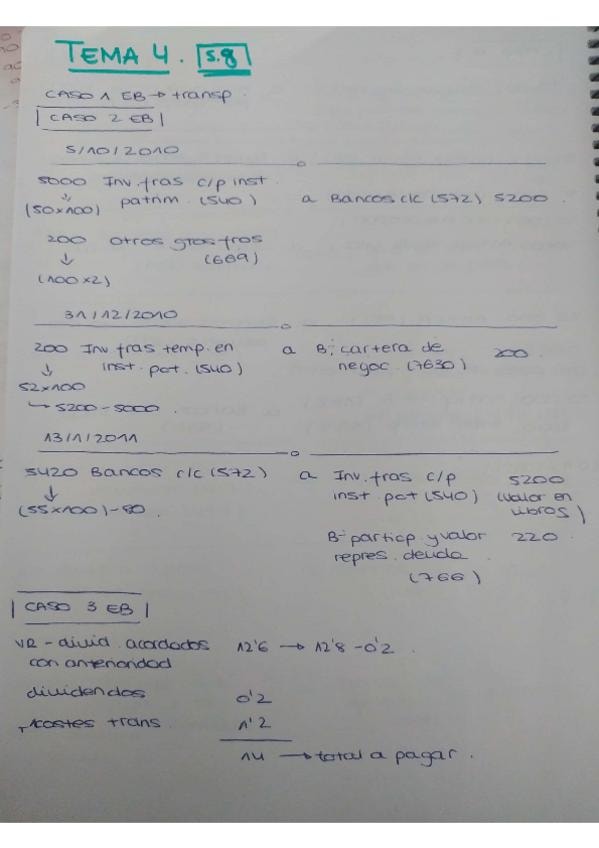 TEMA 4. 5.8
CASO 1 EB → transp.
CASO 2 EB
5/10/2010
5000 Inv. fras c/p inst. patrim. (540) a Bancos c/c (572) 5200.
↓
(50x100)
200 otros gtos fros (669)
↓
(100x2)
31/12/2010
200 Inv fras temp. en inst. pat. (540) a Bº cartera de negoc. (7630) 200.
↓
52x100
↳ 5200-5000.
13/1/2011
5420 Bancos c/c (572) a Inv. fras c/p inst pat (540) 5200 (valor en libros)
↓
(55x100)-80.
Bº particip. y valor repres. deuda (766) 220.
CASO 3 EB
VR - divid. acordados con anterioridad 12'6 → 12'8 - 0'2.
dividendos 0'2
costes trans. 1'2
14 → total a pagar.